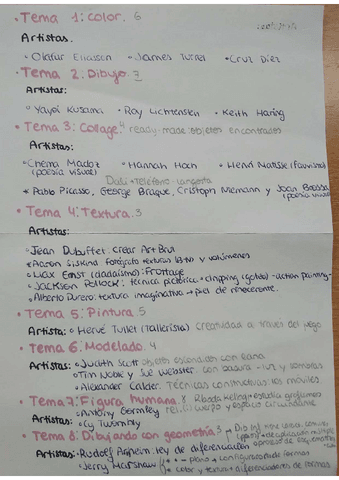 • Tema 1: Color. 6
Artistas.
• Olafur Eliasson • James Turrel • Cruz Diez
• Tema 2: Dibujo. 3
Artistas:
• Yayoi Kusama • Roy Lichtenstein • Keith Haring
• Tema 3: Collage. 4 ready-made objetos encontrados
Artistas:
• Chema Madoz • Hannah Hoch • Henri Matisse (Fauvismo)
(poesía visual)
Dalí → Teléfono-langosta
* Pablo Picasso, George Braque, Cristoph Niemann y Joan Brossa
(poesía visual)
• Tema 4: Textura. 3
Artistas:
• Jean Dubuffet: crear Art Brut
• Aaron Siskind fotógrafo texturas B/N y volúmenes
• Max Ernst (dadaísmo): Frottage
• Jackson Pollock: técnica pictórica • dripping (goteo) - action painting
• Alberto Durero: textura imaginativa → piel de rinoceronte.
• Tema 5: Pintura 5
Artista: • Hervé Tullet (Tallerista) creatividad a través del juego
• Tema 6: Modelado. 4
Artistas: • Judith Scott objetos escondidos con lana
• Tim Noble y Sue Webster. con basura - luz y sombras
• Alexander Calder. Técnicas constructivas los móviles
• Tema 7: Figura humana. 8
Artistas: • Antony Gormley relac. cuerpo y espacio circundante
• Cy Twombly
• Tema 8: Dibujando con geometría 3
Artistas: • Rudolf Arnheim. ley de diferenciación
• Jerry
plano + configuración de formas
color y textura + diferenciadores de formas